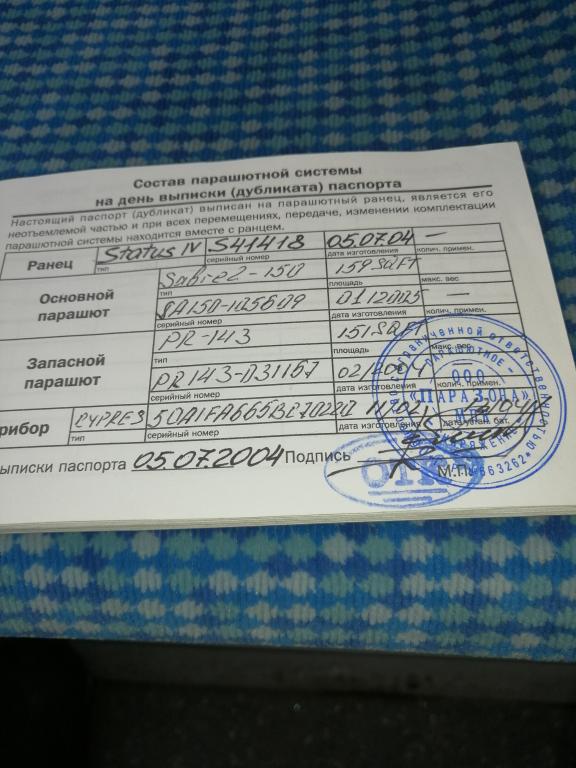 Состав парашютной системы
на день выписки (дубликата) паспорта
Настоящий паспорт (дубликат) выписан на парашютный ранец, является его
неотъемлемой частью и при всех перемещениях, передаче, изменении комплектации
парашютной системы находится вместе с ранцем.
Ранец Status IV S41418 05.07.04 —
тип серийный номер дата изготовления колич. примен.
Основной парашют Sabre2-150 159SQFT
тип площадь макс. вес
SA150-105609 012003 —
серийный номер дата изготовления колич. примен.
Запасной парашют PR-143 151SQFT
тип площадь макс. вес
PR143-031167
серийный номер дата изготовления колич. примен.
рибор CYPRES
тип серийный номер дата изготовления дата устан. бат.
ыписки паспорта 05.07.2004 Подпись М.П.
ограниченной ответственностью
ПАРАШЮТНОЕ
ООО
«ПАРАЗОНА»
ОТК